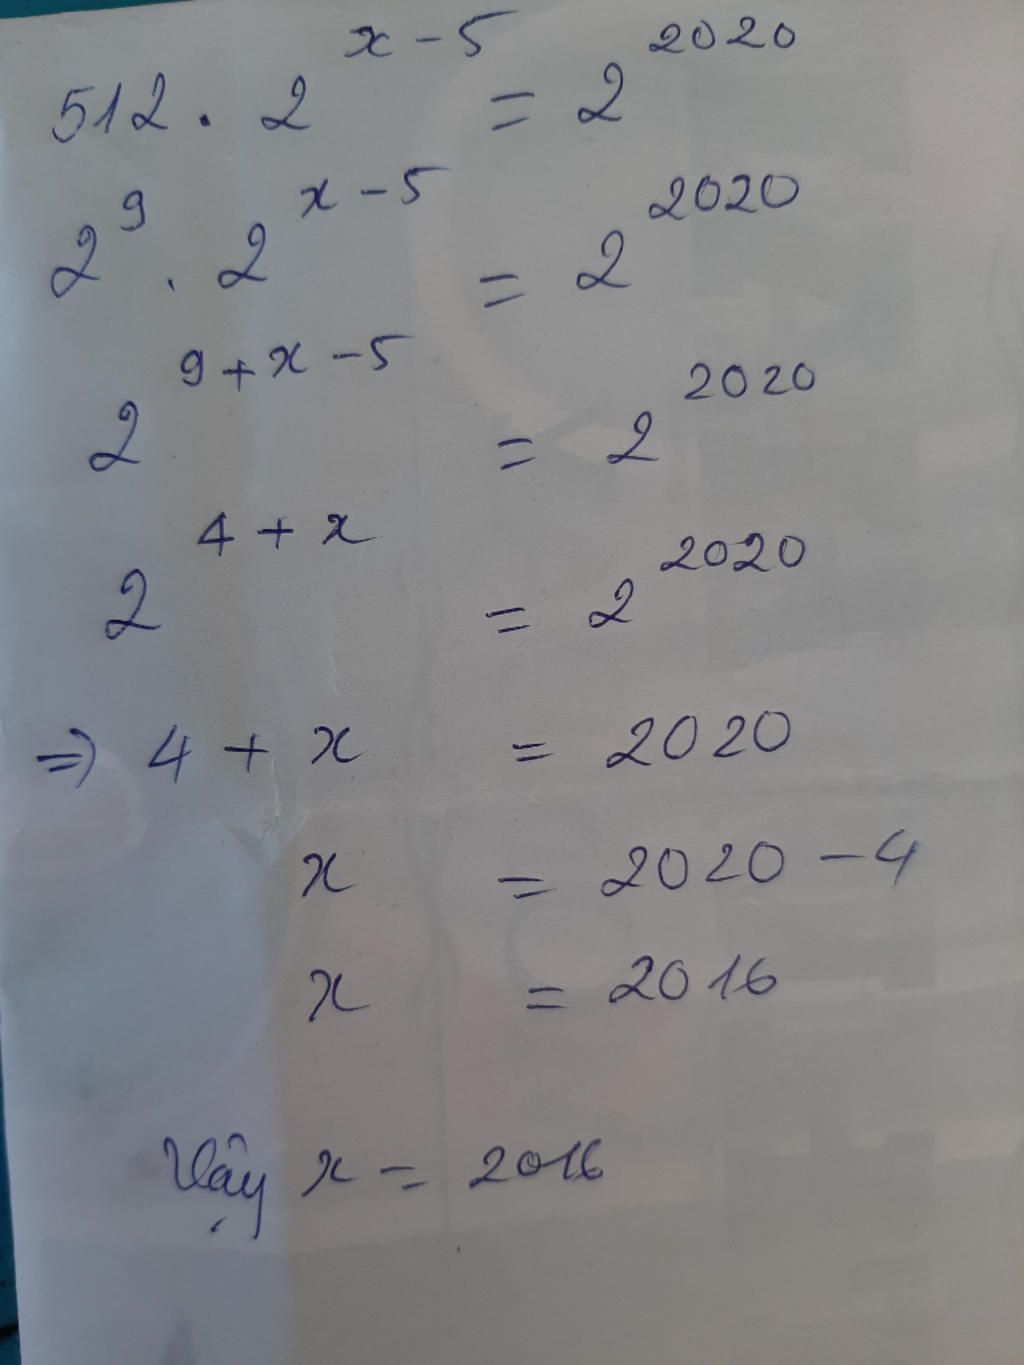 512 . 2^{x-5} = 2^{2020}
2^{9} . 2^{x-5} = 2^{2020}
2^{9+x-5} = 2^{2020}
2^{4+x} = 2^{2020}
=> 4 + x = 2020
x = 2020 - 4
x = 2016
Vậy x = 2016